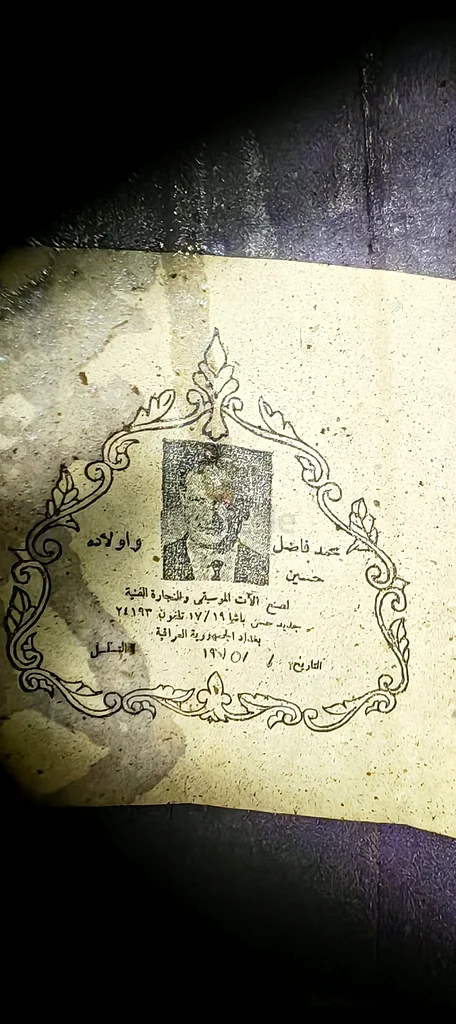 محمد فاضل
حسين
وأولاده
لصنع الآلات الموسيقى والنجارة الفنية
جديد حسن باشا ١٧/١٩ تلفون ٢٤١٩٣
بغداد الجمهورية العراقية
التاريخ: / / ١٩٧٥